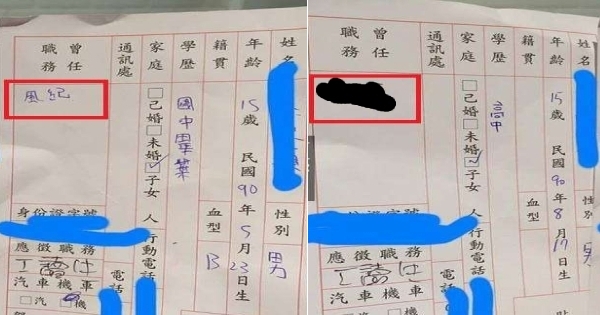 姓名
年齡 15歲 民國90年5月23日生
性別 男
籍貫
血型 B
學歷 國中畢業
家庭 □己婚□未婚☑子女 人
通訊處
行動電話
電話
曾任職務
風紀
身份證字號
應徵職務
汽車機車
□汽☑機
姓名
年齡 15歲 民國90年8月17日生
性別 男
籍貫
血型
學歷 高中
家庭 □己婚□未婚☑子女 人
通訊處
行動電話
電話
曾任職務
應徵職務
汽車機車
□汽□機